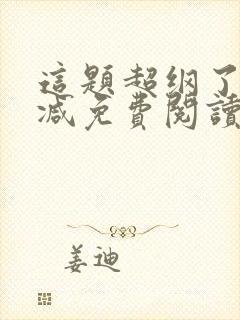 這題超纲了
減免費閱讀
姜迪